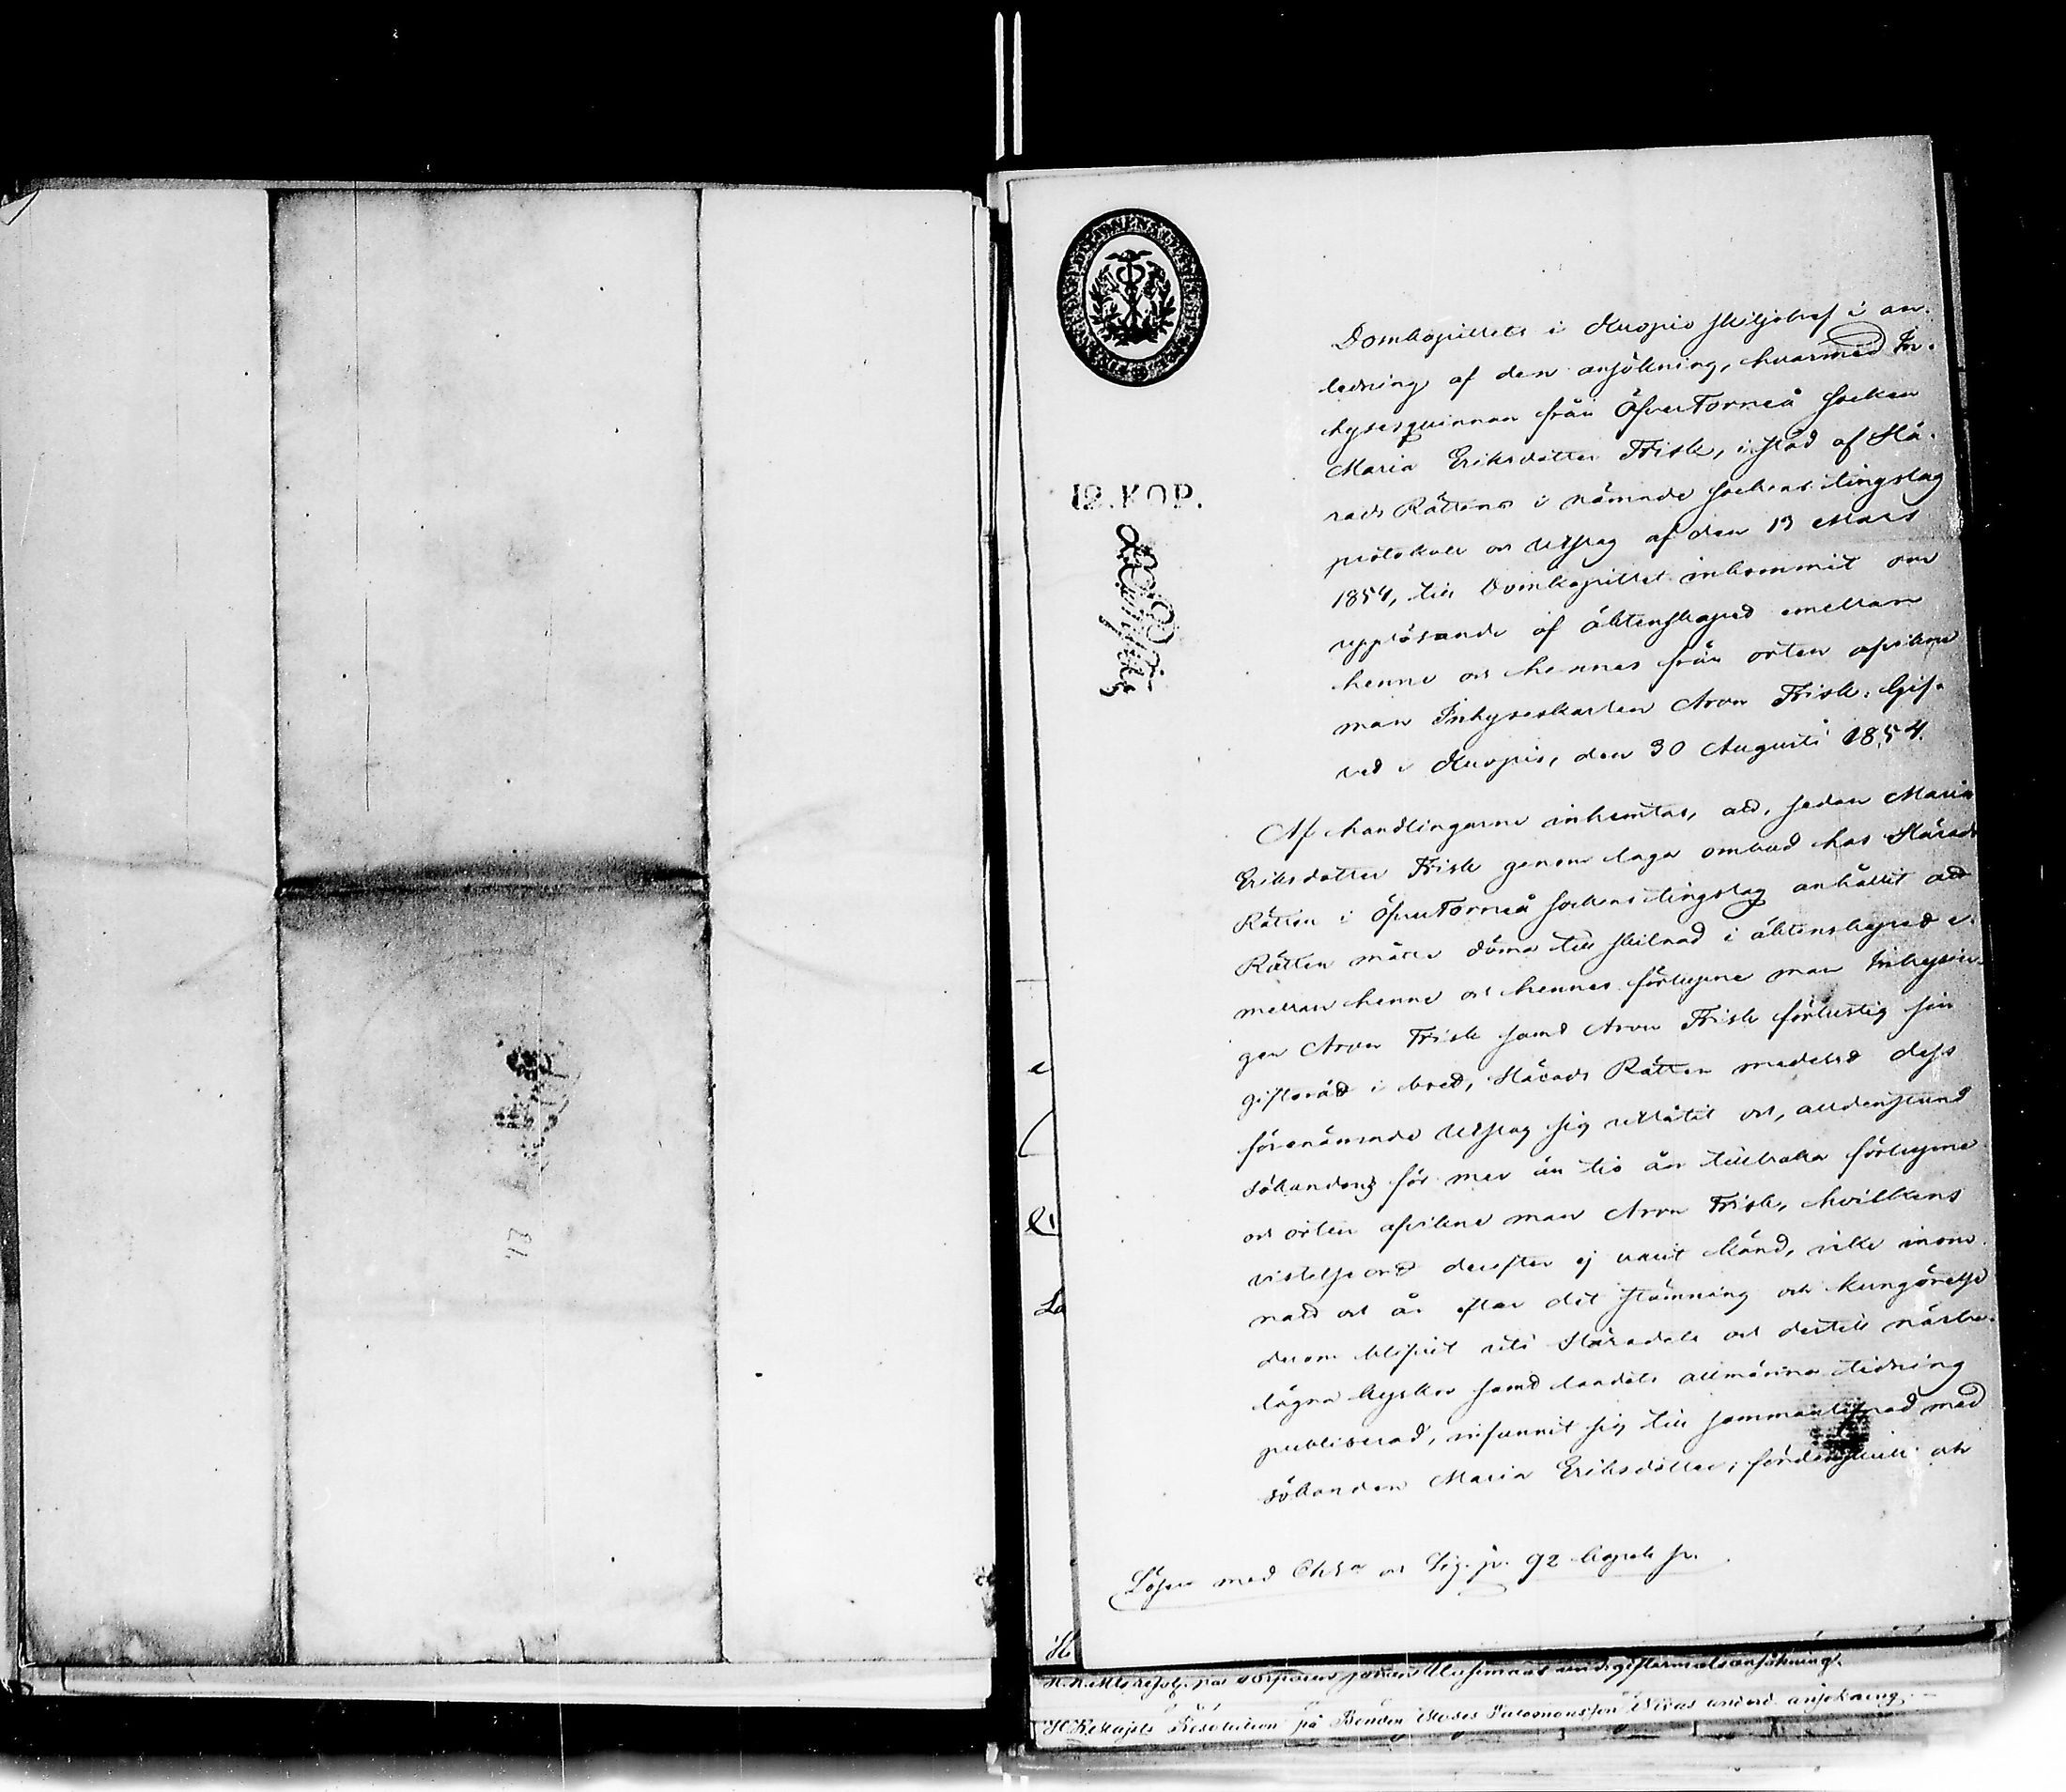 Domkapitlets i Kuopio skiljobref i an-
ledning af den ansökning, hvarmed In-
hysesqvinnan från ÖfverTorneå socken
Maria Eriksdotter Frisk, i stöd af Hä-
rads Rättens i nämnde sockens tingslag
protokoll och utslag af den 13 Mars
1854, till Domkapitlet inkommit om
upplösande af äktenskapet emellan
henne och hennes från orten afvikne
man Inhyseskarlen Aron Frisk; Gif-
vet i Kuopio, den 30 Augusti 1854.
Af handlingarne inhemtas, att, sedan Maria
Eriksdotter Frisk genom laga ombud hos Härads
Rätten i ÖfverTorneå sockens tingslag anhållit att
Rätten måtte döma till skilnad i äktenskapet e-
mellan henne och hennes förlupne man Inhysin-
gen Aron Frisk samt Aron Frisk förlustig sin
giftorätt i boet, Härads Rätten medelst dess
förenämnde utslag sig utlåtit och, alldenstund
sökandens för mer än tio år tillbaka förlupne
och orten afvikne man Aron Frisk, hvilkens
vistelse ort derefter ej varit känd, icke inom
natt och år efter det stämning och kungörelse
derom blifvit uti Häradets och dertill närbe-
lägna kyrkor samt landets allmänna tidning
publicerad, infunnit sig till sammanlefnad med
sökanden Maria Eriksdotter; fördenskull och
Lösen med Chta och Sig. p. 92 kopek sr.
12. KOP.
H. K. Majts Resolution på Bonden Moses Salomonsson Nivas underd. ansökning